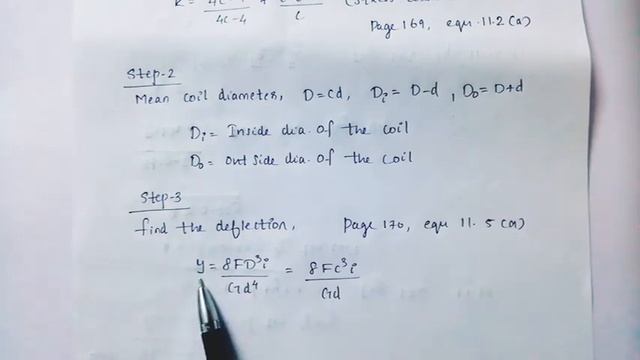 K = 4C-1 / 4C-4 +
C
Page 169, equ. 11.2(a)
Step-2
Mean coil diameter, D=Cd, Di= D-d, Do= D+d
Di= Inside dia. of the coil
Do= Out side dia. of the coil
Step-3
find the deflection, Page 170, equ 11.5(a)
y = 8FD³i / Gd⁴ = 8FC³i / Gd